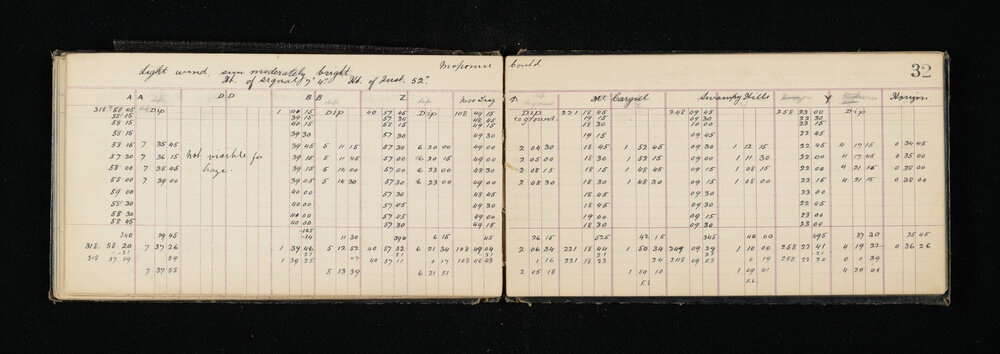 Light wind, sun moderately bright
Ht. of signal 7' 4" Ht. of Inst. 52"
32
A A D D B B Z dip Near Trig Mt Cargill Swampy Hills Y Horizon
318 58 45 Dip 1 40 15 Dip 40 57 30 Dip 108 49 15 Dip 221 18 45 248 09 45 258 23 00 Dip
58 15 39 45 57 30 48 45 to ground 19 15 09 30 22 30
58 15 40 15 57 30 49 15 18 30 10 00 23 15
58 15 39 30 49 30 19 15 09 45 22 45
58 15 7 35 45 Not visible for 39 45 5 11 15 57 30 6 20 00 49 00 2 04 30 18 45 1 52 45 09 15 1 12 15 22 45 4 17 15 0 34 45
57 30 7 36 15 haze. 39 45 5 11 15 57 00 6 20 15 49 00 2 05 00 18 30 1 52 15 09 30 1 11 30 22 00 4 17 45 0 35 00
58 00 7 38 45 39 15 5 14 00 57 45 6 23 00 48 30 2 08 15 18 15 1 48 45 09 15 1 08 15 22 00 4 21 15 0 38 00
58 00 7 39 00 39 45 5 14 30 57 30 6 23 00 49 00 2 08 30 18 30 1 48 30 09 15 1 08 00 22 15 4 21 15 0 38 00
59 00 40 00 57 30 49 00 18 30 09 30 23 00
58 30 39 45 57 45 48 45 18 45 09 30 22 45
58 30 40 00 57 45 49 00 19 00 09 15 23 00
58 45 40 00 57 30 49 15 18 30 09 30 22 30
240 29 45 11 30 390 6 15 45 26 15 525 42 15 345 40 00 495 37 30 25 45
318. 58 20 7 37 26 1 39 46 5 12 52 40 57 32 6 21 34 108 49 04 2 06 34 221 18 44 1 50 34 248 09 29 1 10 00 258 22 41 4 19 22 0 36 26
318 57 59 29 1 39 25 47 40 57 11 0 17 108 48 43 1 16 221 18 23 24 248 09 08 0 19 258 22 20 0 0 39
7 37 55 5 13 39 6 21 51 2 05 18 1 50 10 1 09 41 4 20 01
El. El.